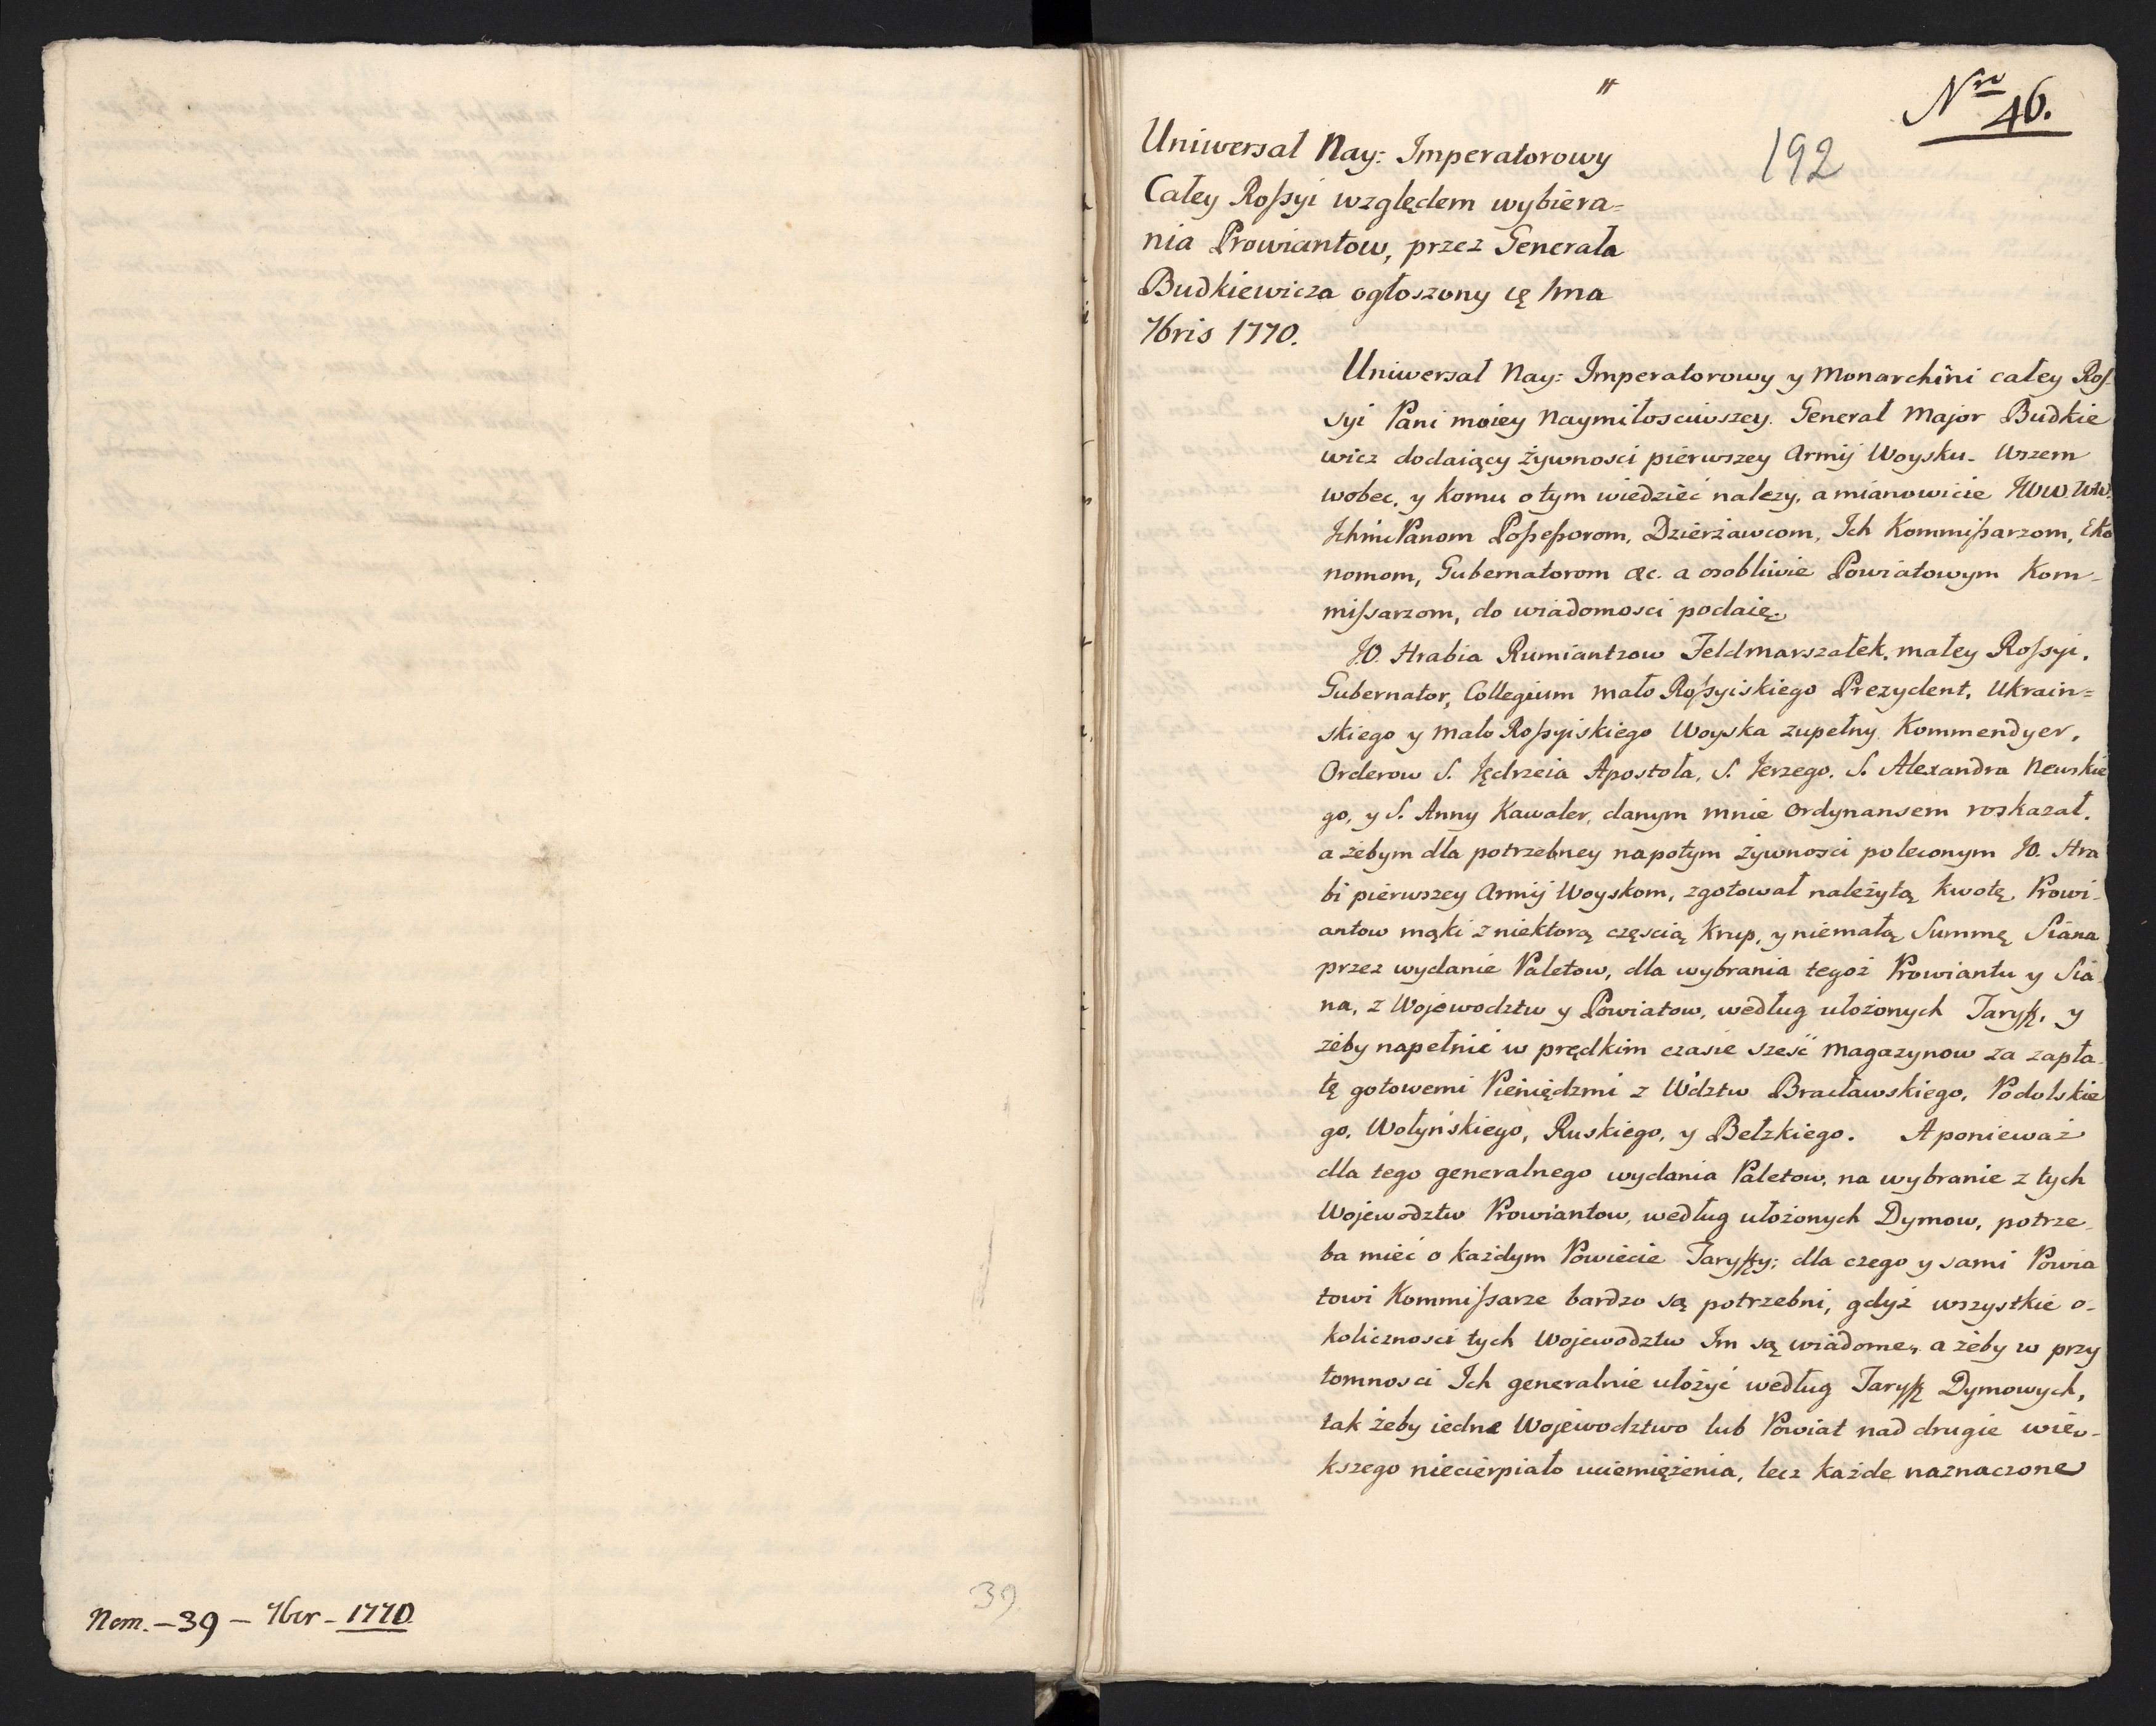 Nem. – 39 – 7br – 1770
39.
Nro 46.
192
Uniwersał Nay: Imperatorowy
Całey Rossyi względem wybiera=
nia Prowiantow, przez Generała
Budkiewicza ogłoszony
7bris 1770.
Uniwersał Nay: Imperatorowy y Monarchini całey Ros-
syi Pani moiey Naymiłosciwszey. Generał Major Budkie
wicz dodaiący żywnosci pierwszey Armij Woysku. Wszem
wobec, y komu o tym wiedzieć nalezy, a mianowicie JWW. WW.
Ichmc Panom Possessorom, Dzierżawcom, Ich Kommissarzom, Eko
nomom, Gubernatorom &c. a osobliwie Powiatowym Kom-
missarzom, do wiadomosci podaię.
JO. Hrabia Rumiantzow Feldmarszałek, małey Rossyi,
Gubernator, Collegium mało Rossyiskiego Prezydent, Ukrain=
skiego y mało Rossyiskiego Woyska zupełny Kommendyer,
Orderow S. Jędrzeia Apostoła, S. Jerzego. S. Alexandra Newskie
go, y S. Anny Kawaler, danym mnie ordynansem roskazał,
a żebym dla potrzebney napotym żywnosci poleconym JO. Hra
bi pierwszey Armij Woyskom, zgotował należytą kwotę, Prowi-
antow mąki z niektorą częscią krup, y niemałą Summę Siana
przez wydanie Paletow, dla wybrania tegoż Prowiantu y Sia
na, z Wojewodztw y Powiatow, według ułożonych Taryff, y
żeby napełnić w prędkim czasie sześć Magazynow za zapła-
tę gotowemi Pieniędzmi z Wdztw Bracławskiego, Podolskie
go, Wołyńskiego, Ruskiego, y Bełzkiego. A ponieważ
dla tego generalnego wydania Paletow, na wybranie z tych
Wojewodztw Prowiantow, według ułożonych Dymow, potrze-
ba mieć o każdym Powiecie Taryffy; dla czego y sami Powia
towi Kommissarze bardzo są potrzebni, gdyż wszystkie o-
kolicznosci tych Wojewodztw Im są wiadome, a żeby w przy
tomnosci Ich generalnie ułożyć według Taryff Dymowych,
tak żeby iedne Wojewodztwo lub Powiat nad drugie wię-
kszego niecierpiało uciemiężenia, lecz każde naznaczone